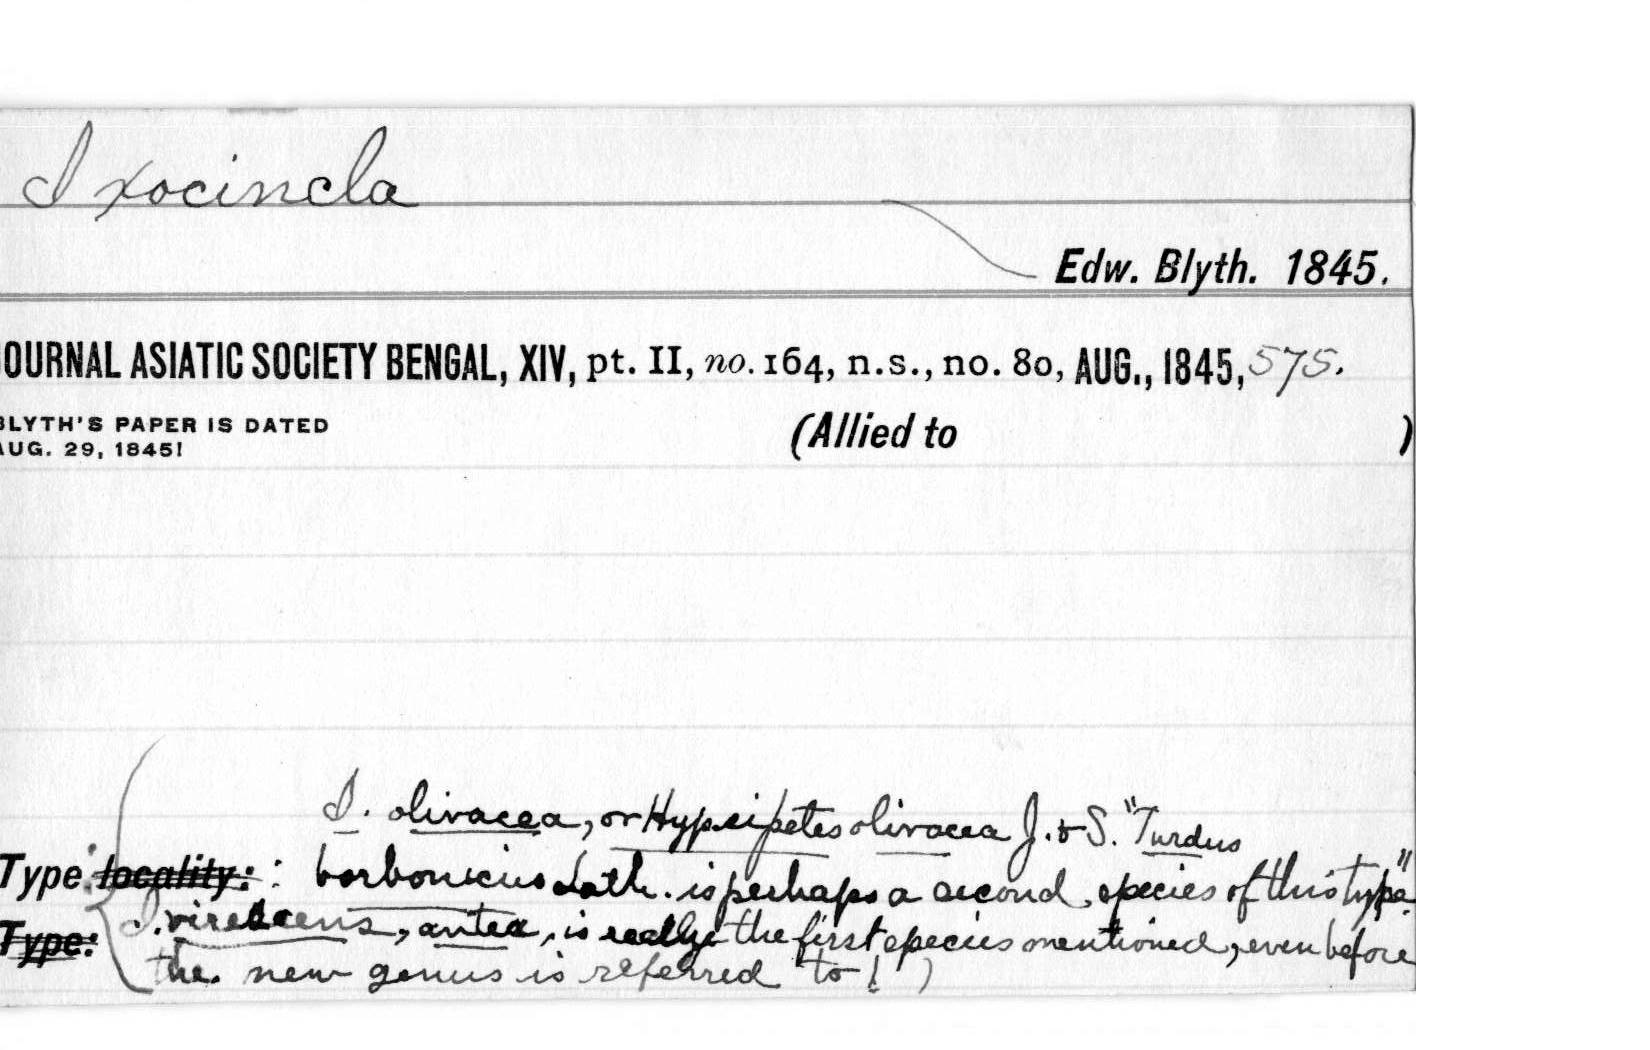 Ixocincla
Edw. Blyth. 1845.
JOURNAL ASIATIC SOCIETY BENGAL, XIV, pt. II, no. 164, n.s., no. 80, AUG., 1845, 575.
BLYTH'S PAPER IS DATED
AUG. 29, 1845!
(Allied to )
I. olivacea, or Hypsipetes olivacea J. & S. "Turdus
Type locality: : borbonicus Lath. is perhaps a second species of this type"
I. virescens, antea, is really the first species mentioned, even before
Type:
the new genus is referred to! )